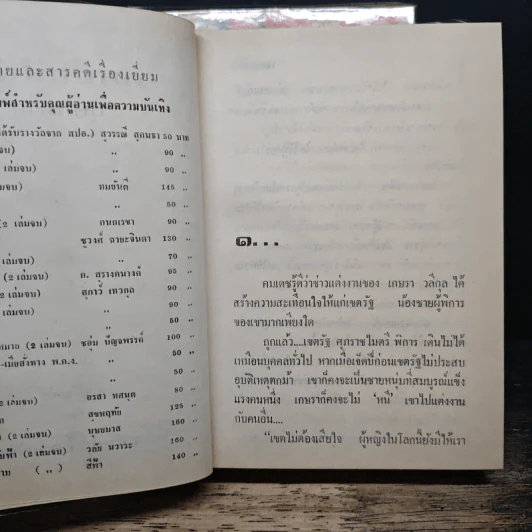 ยและสารคดีเรื่องเยี่ยม
พ์สำหรับคุณผู้อ่านเพื่อความบันเทิง
ได้รับรางวัลจาก สปอ.) สุวรรณี สุคนธา 50 บาท
จบ) ,, 90 ,,
เล่มจบ) ,, 90 ,,
มจบ) ทมยันตี 145 ,,
,, 50 ,,
(2 เล่มจบ) กนกเรขา 90 ,,
ชูวงศ์ ฉายะจินดา 130 ,,
) ,, 70 ,,
(2 เล่มจบ) ก. สุรางคนางค์ 95 ,,
2 เล่มจบ) สุภาว์ เทวกุล 90 ,,
,, 50 ,,
(2 เล่มจบ) ชอุ่ม ปัญจพรรค์ 100 ,,
-เมียสั่งทาง พ.ก.ง. ,, 50 ,,
,, 50 ,,
2 เล่มจบ) อรสา 80 ,,
สุขหฤทัย 125 ,,
บุษยมาส 160 ,,
(2 เล่มจบ) วลัย นวาระ 160 ,,
( ,, ) สีฟ้า 140 ,,
๑...
คมเดชรู้ดีว่าข่าวแต่งงานของ เกษรา วลีกุล ได้
สร้างความสะเทือนใจให้แก่เขตรัฐ น้องชายผู้พิการ
ของเขามากเพียงใด
ถูกแล้ว....เขตรัฐ ศุภราชไมตรี พิการ เดินไม่ได้
เหมือนบุคคลทั่วไป หากเมื่อเจ็ดปีก่อนเขตรัฐไม่ประสบ
อุบัติเหตุตกม้า เขาก็คงจะเป็นชายหนุ่มที่สมบูรณ์แข็ง
แรงคนหนึ่ง เกษราก็คงจะไม่ 'หนี' เขาไปแต่งงาน
กับคนอื่น....
“เขตไม่ต้องเสียใจ ผู้หญิงในโลกนี้ยังมีให้เรา